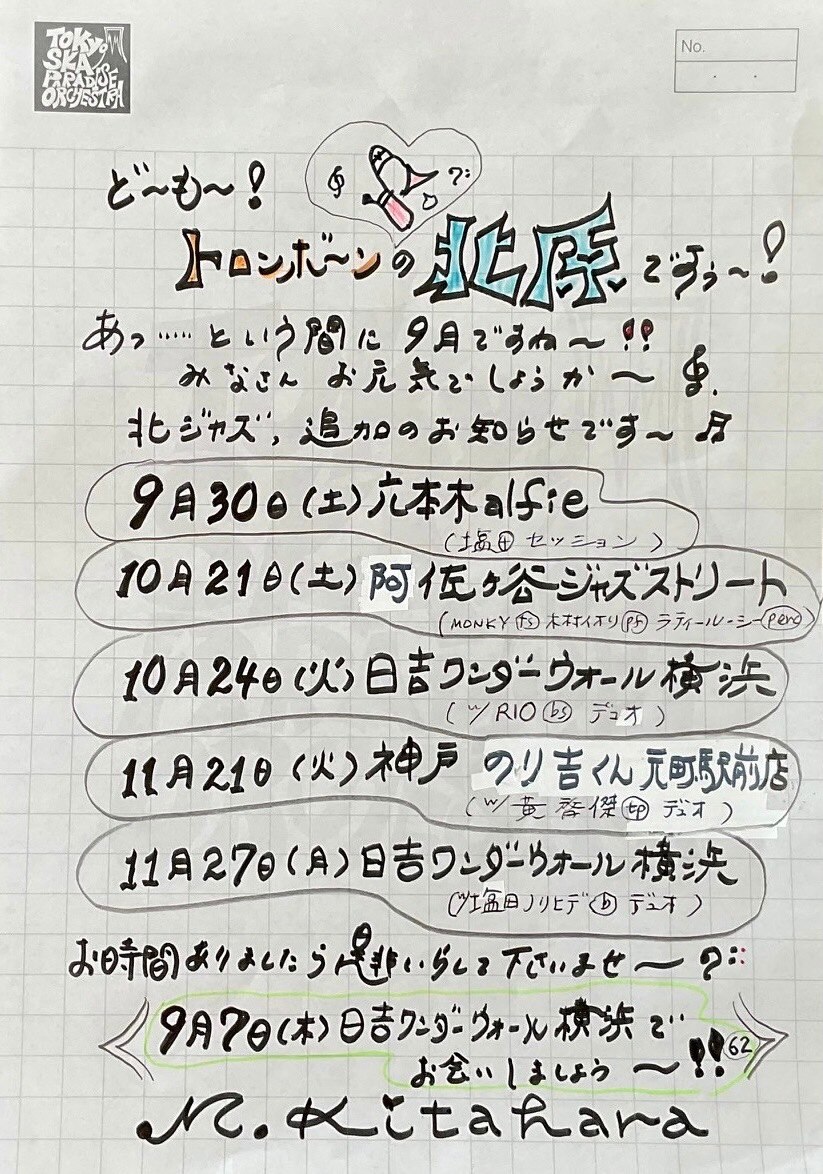 TOKYO
SKA
PARADISE
ORCHESTRA
No.
ど〜も〜!
トロンボーンの北原ですぅ〜!
あっ……という間に9月ですね〜!!
みなさんお元気でしょうか〜
北ジャズ、追加のお知らせです〜♬
9月30日(土)六本木alfie
(塩田セッション)
10月21日(土)阿佐ヶ谷ジャズストリート
(MONKY ts 木村イオリ pf ラティール・シー perc)
10月24日(火)日吉ワンダーウォール横浜
(w/RIO bs デュオ)
11月21日(火)神戸 のり吉くん 元町駅前店
(w/黄啓傑 tp デュオ)
11月27日(月)日吉ワンダーウォール横浜
(w/塩田ノリヒデ b デュオ)
お時間ありましたら是非いらして下さいませ〜
9月7日(木)日吉ワンダーウォール横浜で
お会いしましょう〜!!
62
N. Kitahara